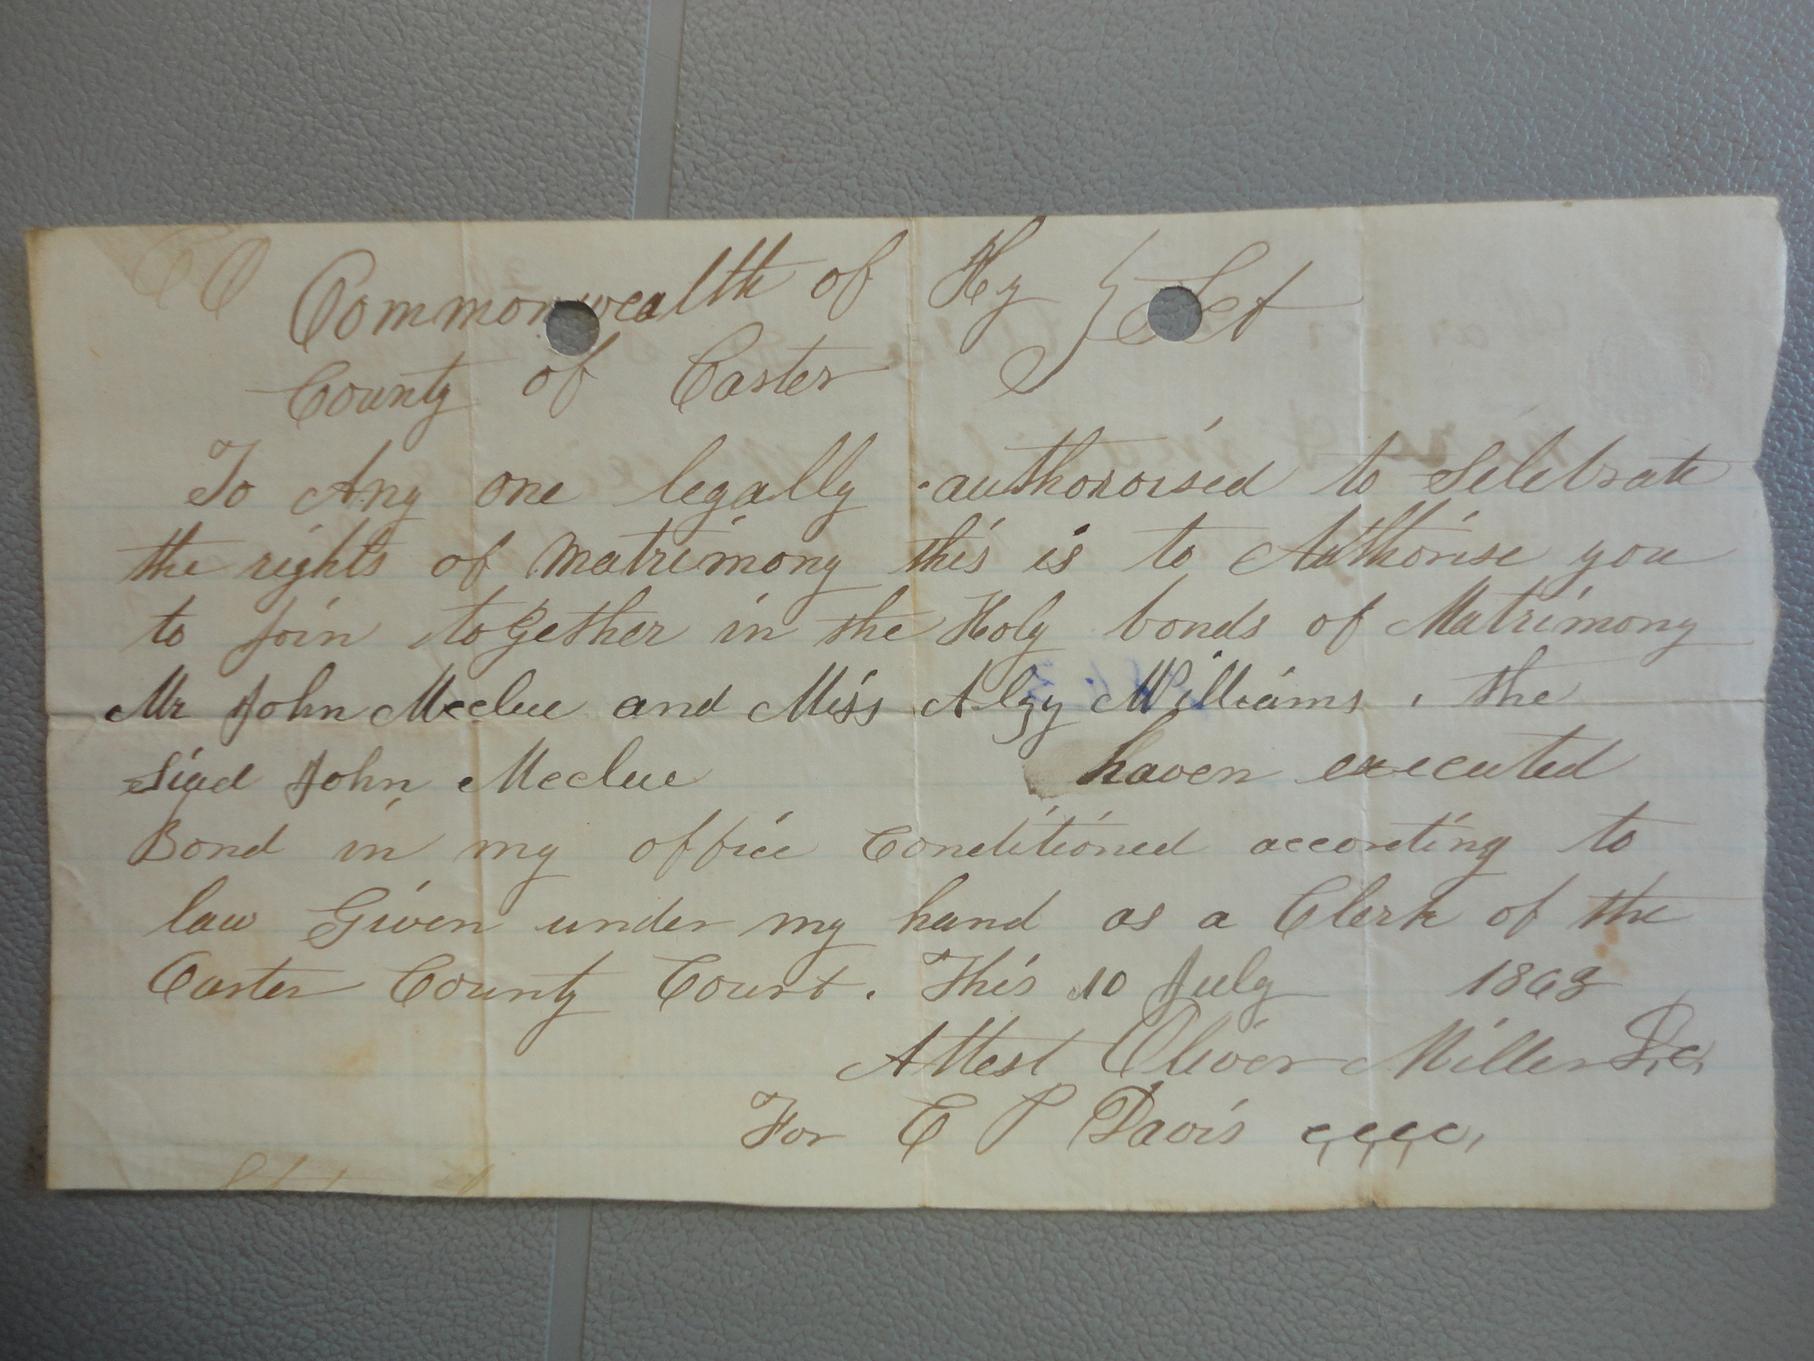 Commonwealth of Ky } Sct
County of Carter
To Any one legally authoroised to Selebrate
the rights of Matrimony this is to Authorise you
to join together in the Holy bonds of Matrimony
Mr John Mcclue and Miss Alzy Williams, the
Siad John Mcclue haven executed
Bond in my office Conditioned according to
law Given under my hand as a Clerk of the
Carter County Court. This 10 July 1868
Attest Oliver Miller D,C,
For C P Davis c,c,c,c,